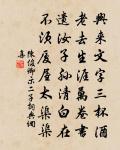 興來文字三杯酒
老去生涯萬卷書
遺汝子孫清白在
不須廈屋太渠渠
陳俊卿示二子詞典網